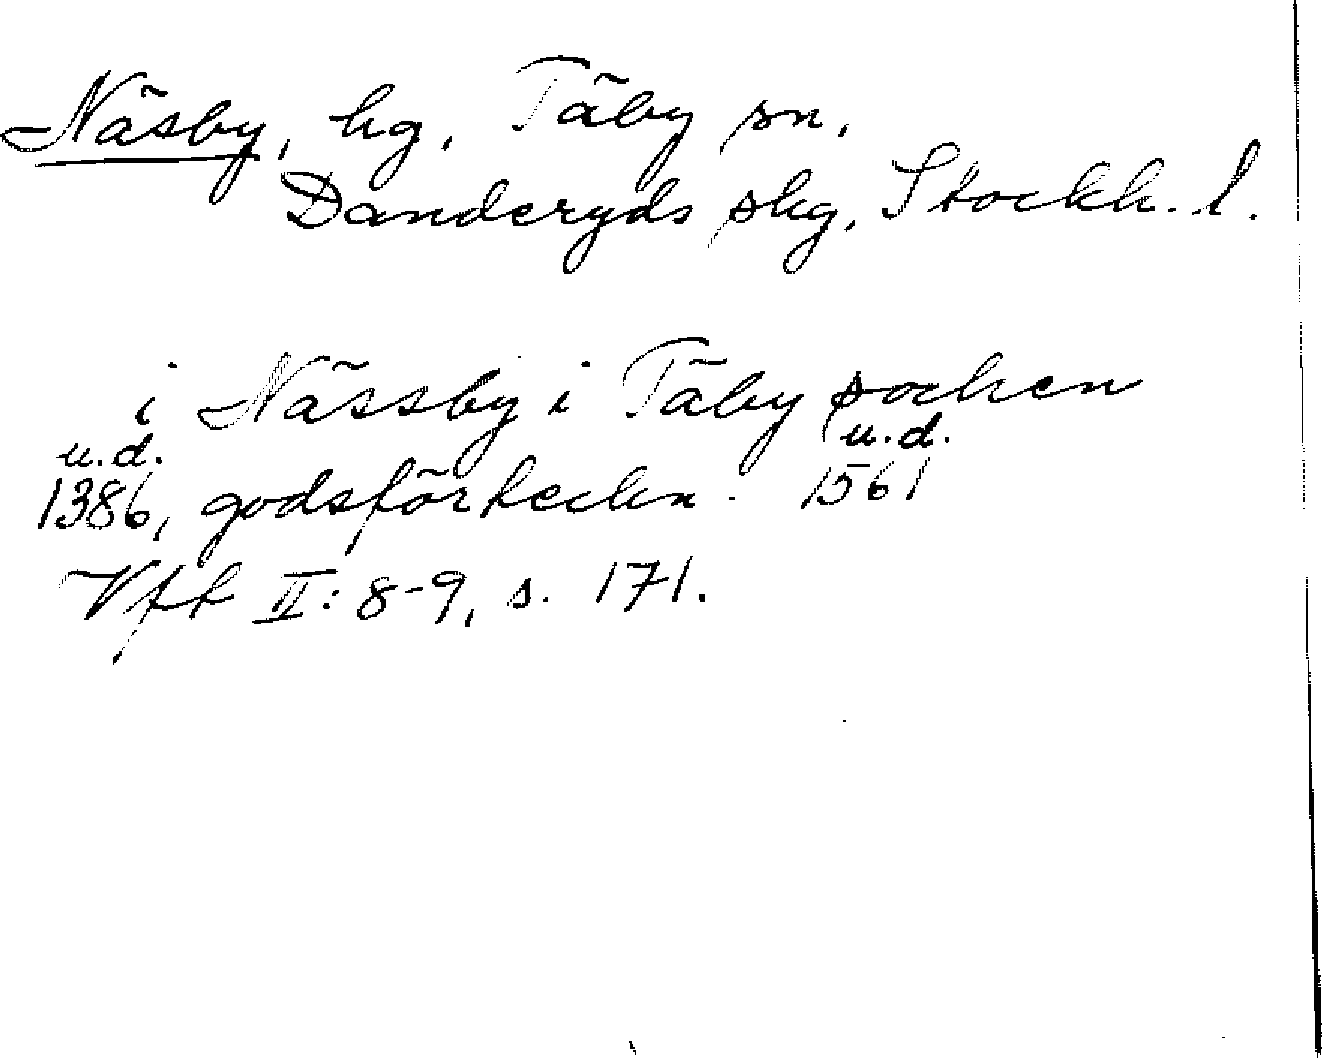 Näsby, hg. Täby sn.
Danderyds skg, Stockh. l.
i Nässby i Täby socken
u.d. u.d.
1386, godsförteckn. 1561
Vff II: 8-9, s. 171.